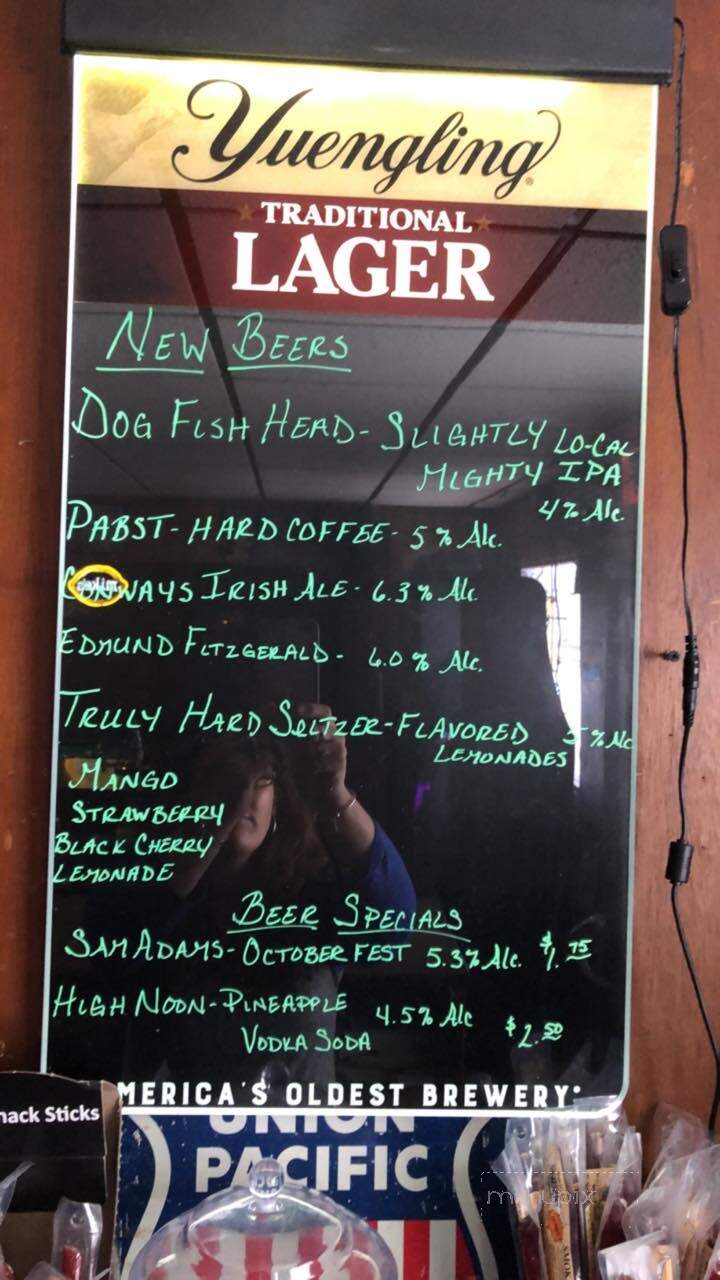 Yuengling
TRADITIONAL
LAGER
NEW BEERS
DOG FISH HEAD - SLIGHTLY LO-CAL
MIGHTY IPA
4% Alc.
PABST - HARD COFFEE - 5% Alc.
CONWAYS IRISH ALE - 6.3% Alc.
EDMUND FITZGERALD - 6.0% Alc.
TRULY HARD SELTZER - FLAVORED 5% Alc
LEMONADES
MANGO
STRAWBERRY
BLACK CHERRY
LEMONADE
BEER SPECIALS
SAM ADAMS - OCTOBER FEST 5.3% Alc. $1.75
HIGH NOON - PINEAPPLE 4.5% Alc $2.50
VODKA SODA
MERICA'S OLDEST BREWERY
nack Sticks
UNION
PACIFIC
menupix